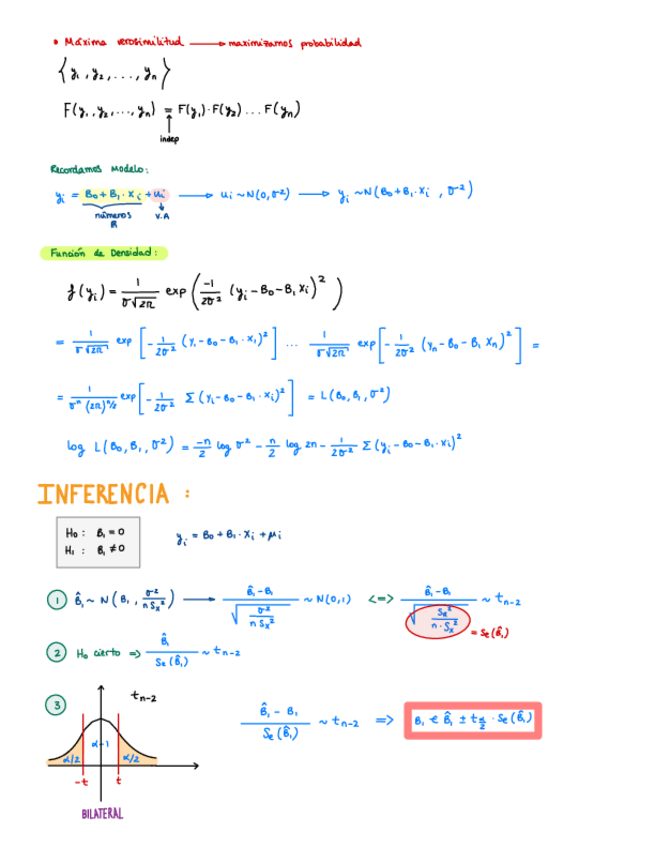 • Máxima verosimilitud ⟶ maximizamos probabilidad
{y₁, y₂, ..., yₙ}
F(y₁, y₂, ..., yₙ) = F(y₁)·F(y₂)...F(yₙ)
↑
indep
Recordamos Modelo:
yᵢ = B₀ + B₁·Xᵢ + uᵢ ⟶ uᵢ ~ N(0, σ²) ⟶ yᵢ ~ N(B₀ + B₁·Xᵢ, σ²)
números V.A
R
Función de Densidad:
f(yᵢ) = 1/(σ√2π) exp(-1/2σ² (yᵢ - B₀ - B₁Xᵢ)²)
= 1/(σ√2π) exp[-1/2σ² (y₁ - B₀ - B₁·X₁)²] ... 1/(σ√2π) exp[-1/2σ² (yₙ - B₀ - B₁Xₙ)²] =
= 1/(σⁿ(2π)^(n/2)) exp[-1/2σ² Σ(yᵢ - B₀ - B₁·Xᵢ)²] = L(B₀, B₁, σ²)
log L(B₀, B₁, σ²) = -n/2 log σ² - n/2 log 2π - 1/2σ² Σ(yᵢ - B₀ - B₁·Xᵢ)²
INFERENCIA :
H₀: B₁ = 0
H₁: B₁ ≠ 0
yᵢ = B₀ + B₁·Xᵢ + μᵢ
1 B̂₁ ~ N(B₁, σ²/(n Sx²)) ⟶ (B̂₁ - B₁)/√(σ²/(n Sx²)) ~ N(0,1) <=> (B̂₁ - B₁)/√(S_R²/(n·Sx²)) ~ tₙ₋₂
= Se(B̂₁)
2 H₀ cierto => B̂₁/Se(B̂₁) ~ tₙ₋₂
3 tₙ₋₂
(B̂₁ - B₁)/Se(B̂₁) ~ tₙ₋₂ => B₁ ∈ B̂₁ ± t_(α/2) · Se(B̂₁)
α/2 α-1 α/2
-t t
BILATERAL